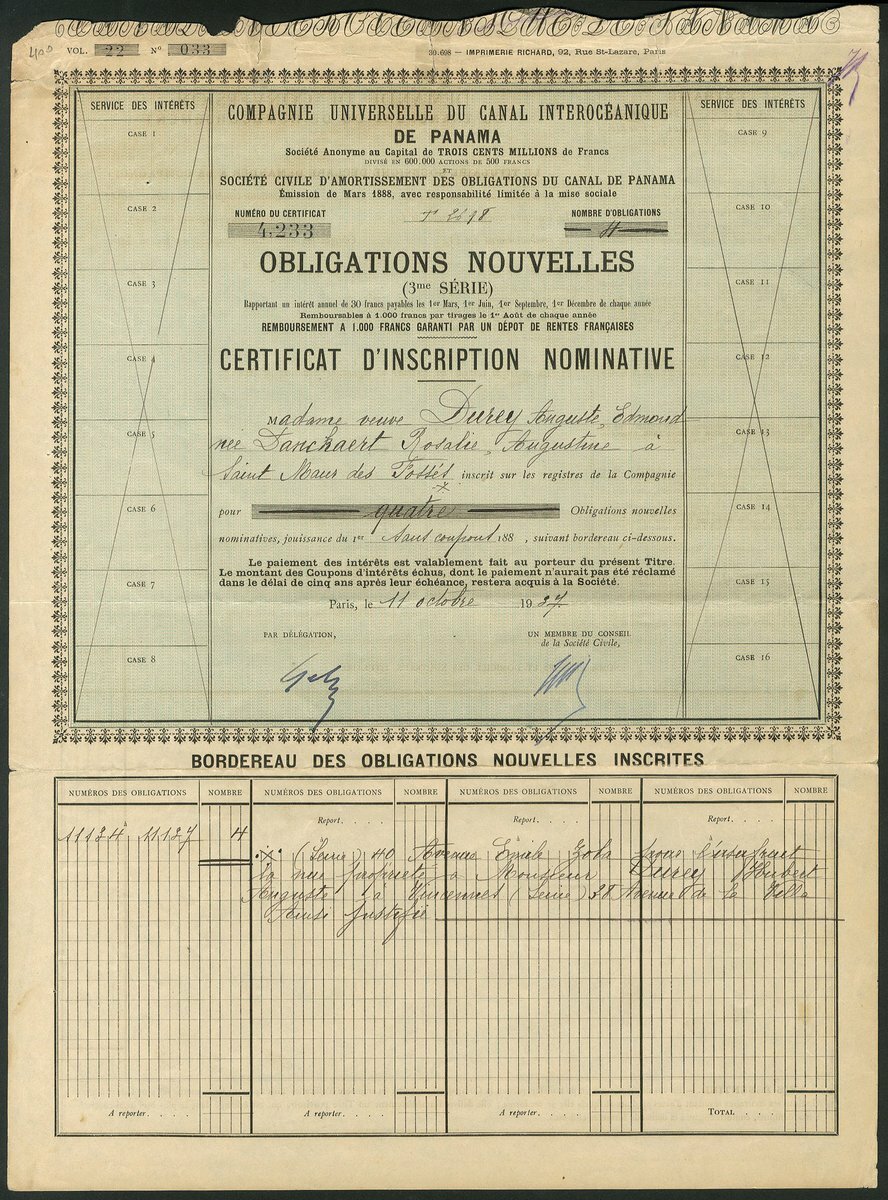 400 VOL. 22 N° 033
30.698 — IMPRIMERIE RICHARD, 92, Rue St-Lazare, Paris
SERVICE DES INTÉRÊTS
CASE 1
CASE 2
CASE 3
CASE 4
CASE 5
CASE 6
CASE 7
CASE 8
COMPAGNIE UNIVERSELLE DU CANAL INTEROCÉANIQUE
DE PANAMA
Société Anonyme au Capital de TROIS CENTS MILLIONS de Francs
DIVISÉ EN 600.000 ACTIONS DE 500 FRANCS
ET
SOCIÉTÉ CIVILE D'AMORTISSEMENT DES OBLIGATIONS DU CANAL DE PANAMA
Émission de Mars 1888, avec responsabilité limitée à la mise sociale
NUMÉRO DU CERTIFICAT
4,233
NOMBRE D'OBLIGATIONS
4
OBLIGATIONS NOUVELLES
(3me SÉRIE)
Rapportant un intérêt annuel de 30 francs payables les 1er Mars, 1er Juin, 1er Septembre, 1er Décembre de chaque année
Remboursables à 1.000 francs par tirages le 1er Août de chaque année
REMBOURSEMENT A 1.000 FRANCS GARANTI PAR UN DÉPOT DE RENTES FRANÇAISES
CERTIFICAT D'INSCRIPTION NOMINATIVE
Madame veuve Durey Auguste, Edmond
née Danckaert Rosalie, Augustine à
Saint Maur des Fossés inscrit sur les registres de la Compagnie
pour quatre Obligations nouvelles
nominatives, jouissance du 1er Sans coupons 188 , suivant bordereau ci-dessous.
Le paiement des intérêts est valablement fait au porteur du présent Titre.
Le montant des Coupons d'intérêts échus, dont le paiement n'aurait pas été réclamé
dans le délai de cinq ans après leur échéance, restera acquis à la Société.
Paris, le 11 octobre 1937
PAR DÉLÉGATION,
UN MEMBRE DU CONSEIL
de la Société Civile,
SERVICE DES INTÉRÊTS
CASE 9
CASE 10
CASE 11
CASE 12
CASE 13
CASE 14
CASE 15
CASE 16
BORDEREAU DES OBLIGATIONS NOUVELLES INSCRITES
NUMÉROS DES OBLIGATIONS NOMBRE NUMÉROS DES OBLIGATIONS NOMBRE NUMÉROS DES OBLIGATIONS NOMBRE NUMÉROS DES OBLIGATIONS NOMBRE
Report. . . . Report. . . . Report. . . .
11134 à 11137 4
(Seine) 40 Avenue Emile Zola pour l'usufruit
la nue propriété à Monsieur Durey Hubert
Auguste à Vincennes (Seine) 38 Avenue de la Villa
Ainsi justifié
A reporter. . . . A reporter. . . . A reporter. . . . TOTAL . . . .